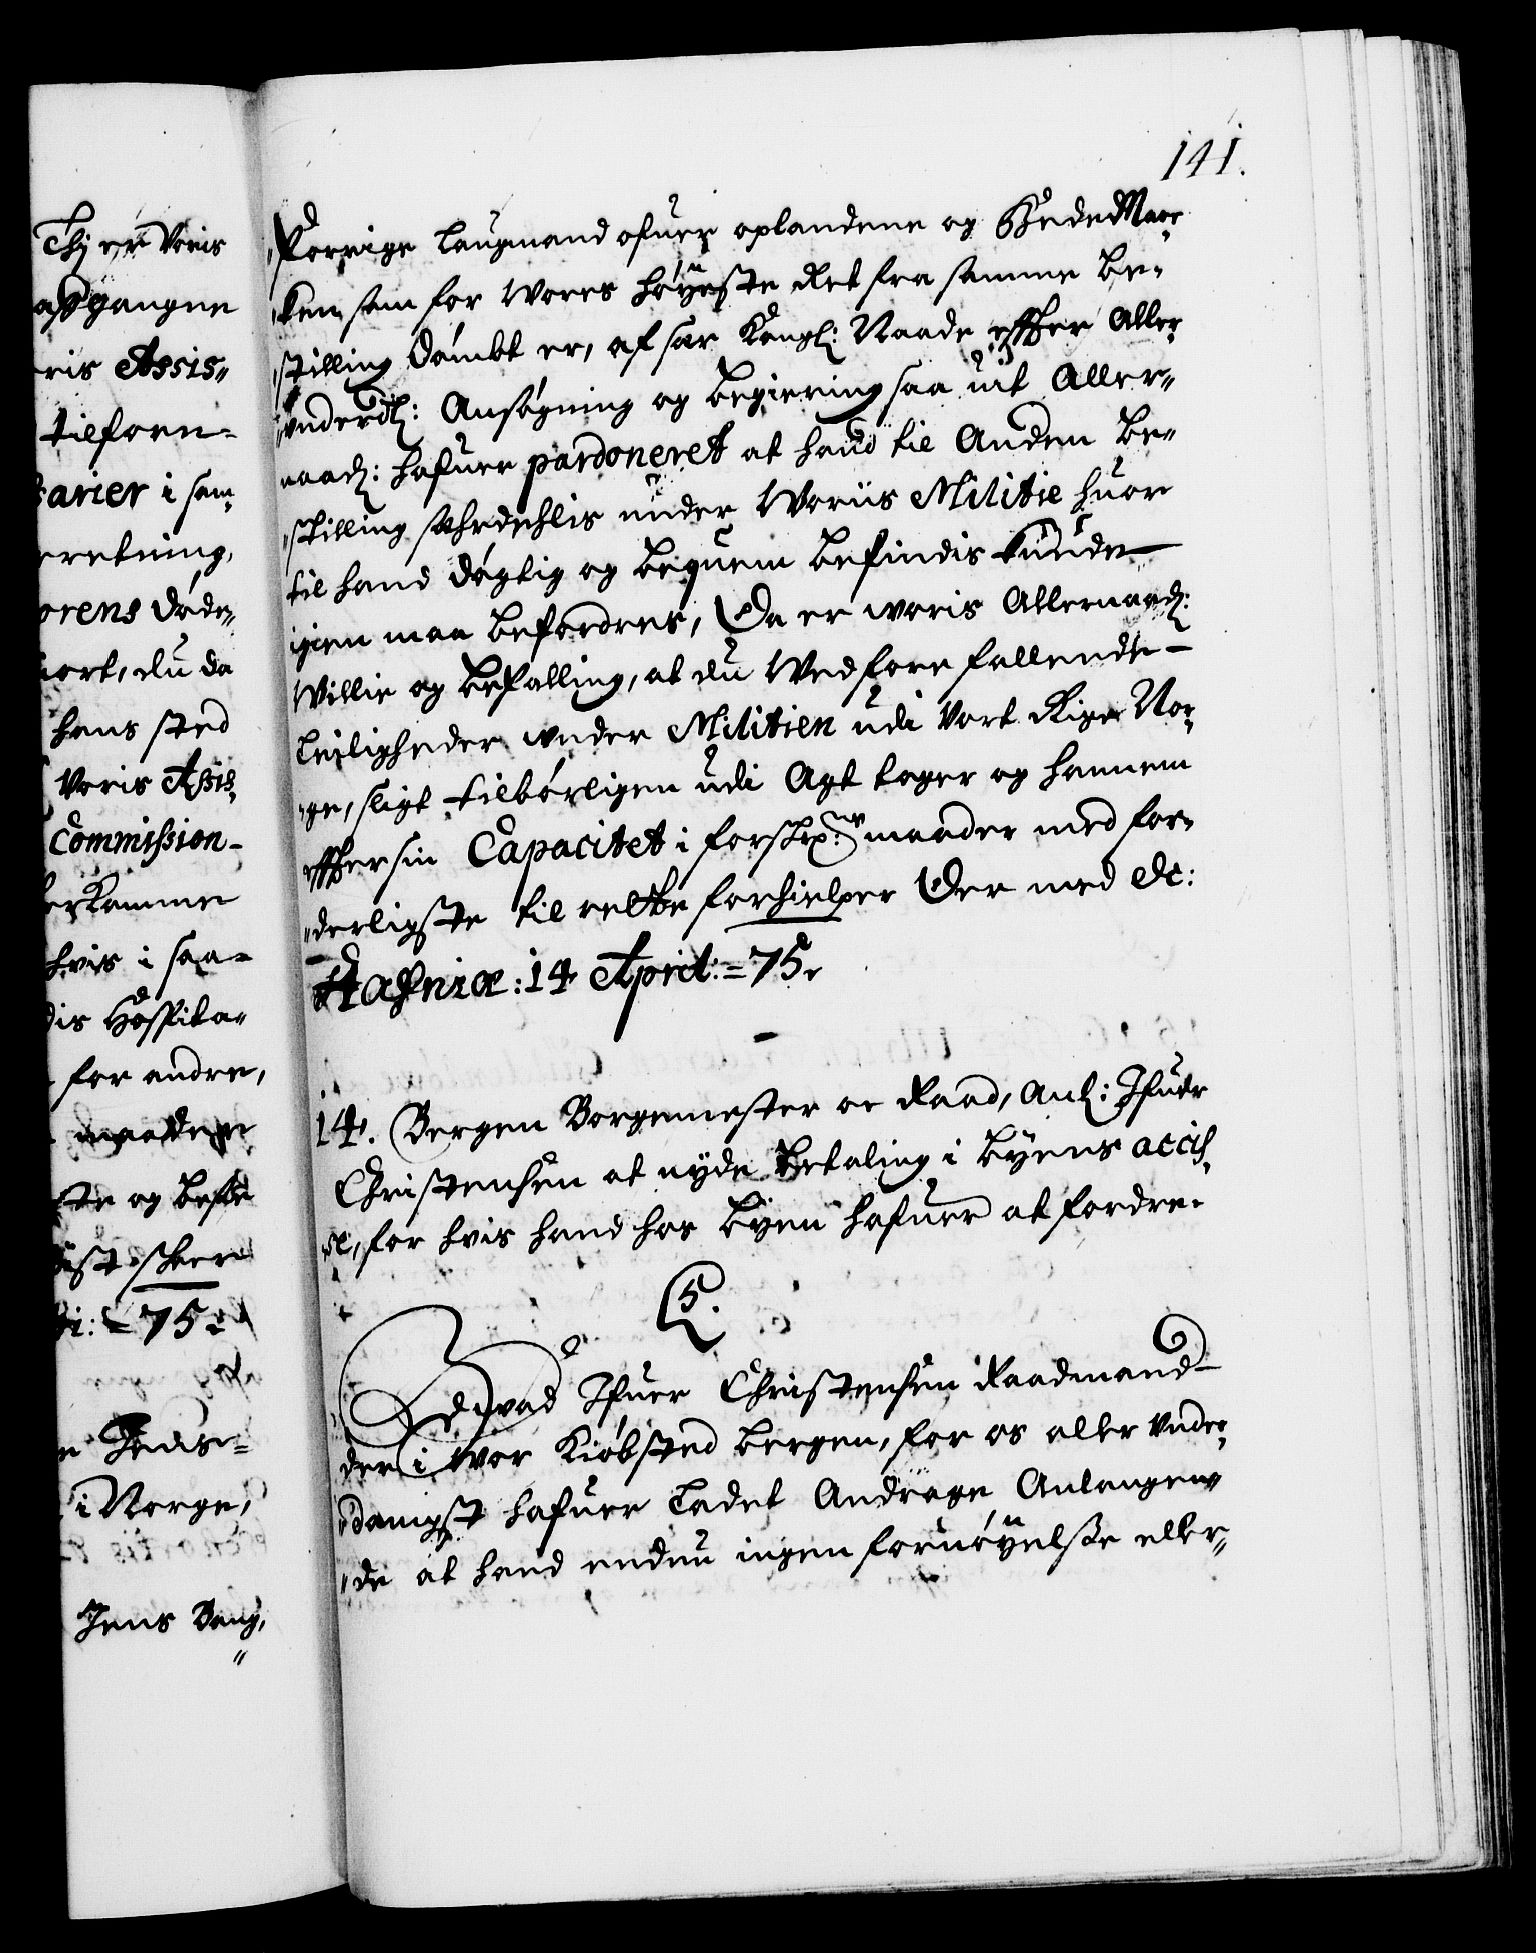 Thj er Voris
afgangne
ris Assis„
tilforn=
sarier i sam„
rretning,
orens Døde„
ort, du da
hans sted
Voris Assis„
Commission-
berkomme
hvis i saa=
dis Hospita=
for andre,
maader
te og beste
ist skeer
i: = 75.
Jens=
i Norge,
Jens Bang,
141.
Forrige Laugmand ofuer oplandene og HedeMar„
„ken som for Vores høyeste Ret fra samme Be„
„stilling dømbt er, af sær Kongl: Naade effter Aller„
„underd: Ansøgning og begiering saa vit Aller„
naad: hafuer pardoneret at hand til Anden Be„
„stilling serdehlis under Voriis Militie huor
til hand døgtig og bequem befindis kunde
igien maa befordres, Da er woris Allernaad:
Villie og befalling, at du Ved forefallende
Leiligheder under Militien udi Vort Rige Nor„
„ge, sligt tilbørligen udi Agt tager og hannem
effter sin Capacitet i forskr:ne maader med for„
„derligste til rette forhielper Der med &c:
Hafniæ: 14 April: = 75.
14. Bergen Borgemester oc Raad, Anl: Ifuer
Christensen at nyde betaling i Byens accis„
„e, for hvis hand hos Byen hafuer at fordre.
C 5.
Edvad Ifuer Christensen Raadmand
der i wor Kiøbsted Bergen, for os aller under„
„danigst hafuer ladet Andrage Anlangen„
„de at hand endnu ingen fornøyelse eller„